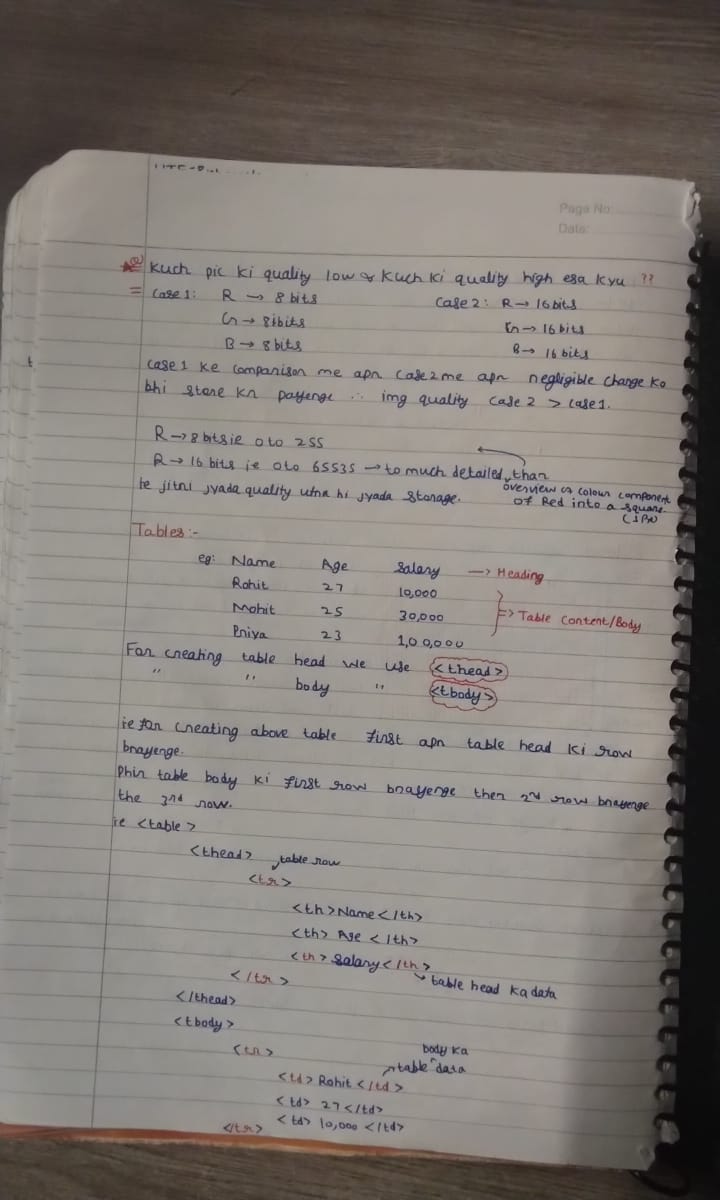 Page No:
Date:
Q) Kuch pic ki quality low & Kuch ki quality high esa kyu ??
= Case 1: R → 8 bits Case 2: R → 16 bits
G → 8 bits G → 16 bits
B → 8 bits B → 16 bits
Case 1 ke comparison me apn case 2 me apn negligible change ko
bhi store kr payenge ∴ img quality case 2 > case 1.
R → 8 bits ie 0 to 255
R → 16 bits ie 0 to 65535 → to much detailed, than
overview of colour component
ie jitni jyada quality utna hi jyada storage. of Red into a square
Tables :-
eg: Name Age Salary → Heading
Rohit 27 10,000
Mohit 25 30,000 => Table Content/Body
Priya 23 1,00,000
For creating table head we use <thead>
" " body " <tbody>
ie for creating above table first apn table head ki row
bnayenge.
Phir table body ki first row bnayenge then 2nd row bnayenge
the 3rd row.
ie <table>
<thead> table row
<tr>
<th>Name</th>
<th> Age </th>
<th> Salary </th>
</tr> table head ka data
</thead>
<tbody>
<tr> body ka
table data
<td> Rohit </td>
<td> 27 </td>
<td> 10,000 </td>
</tr>